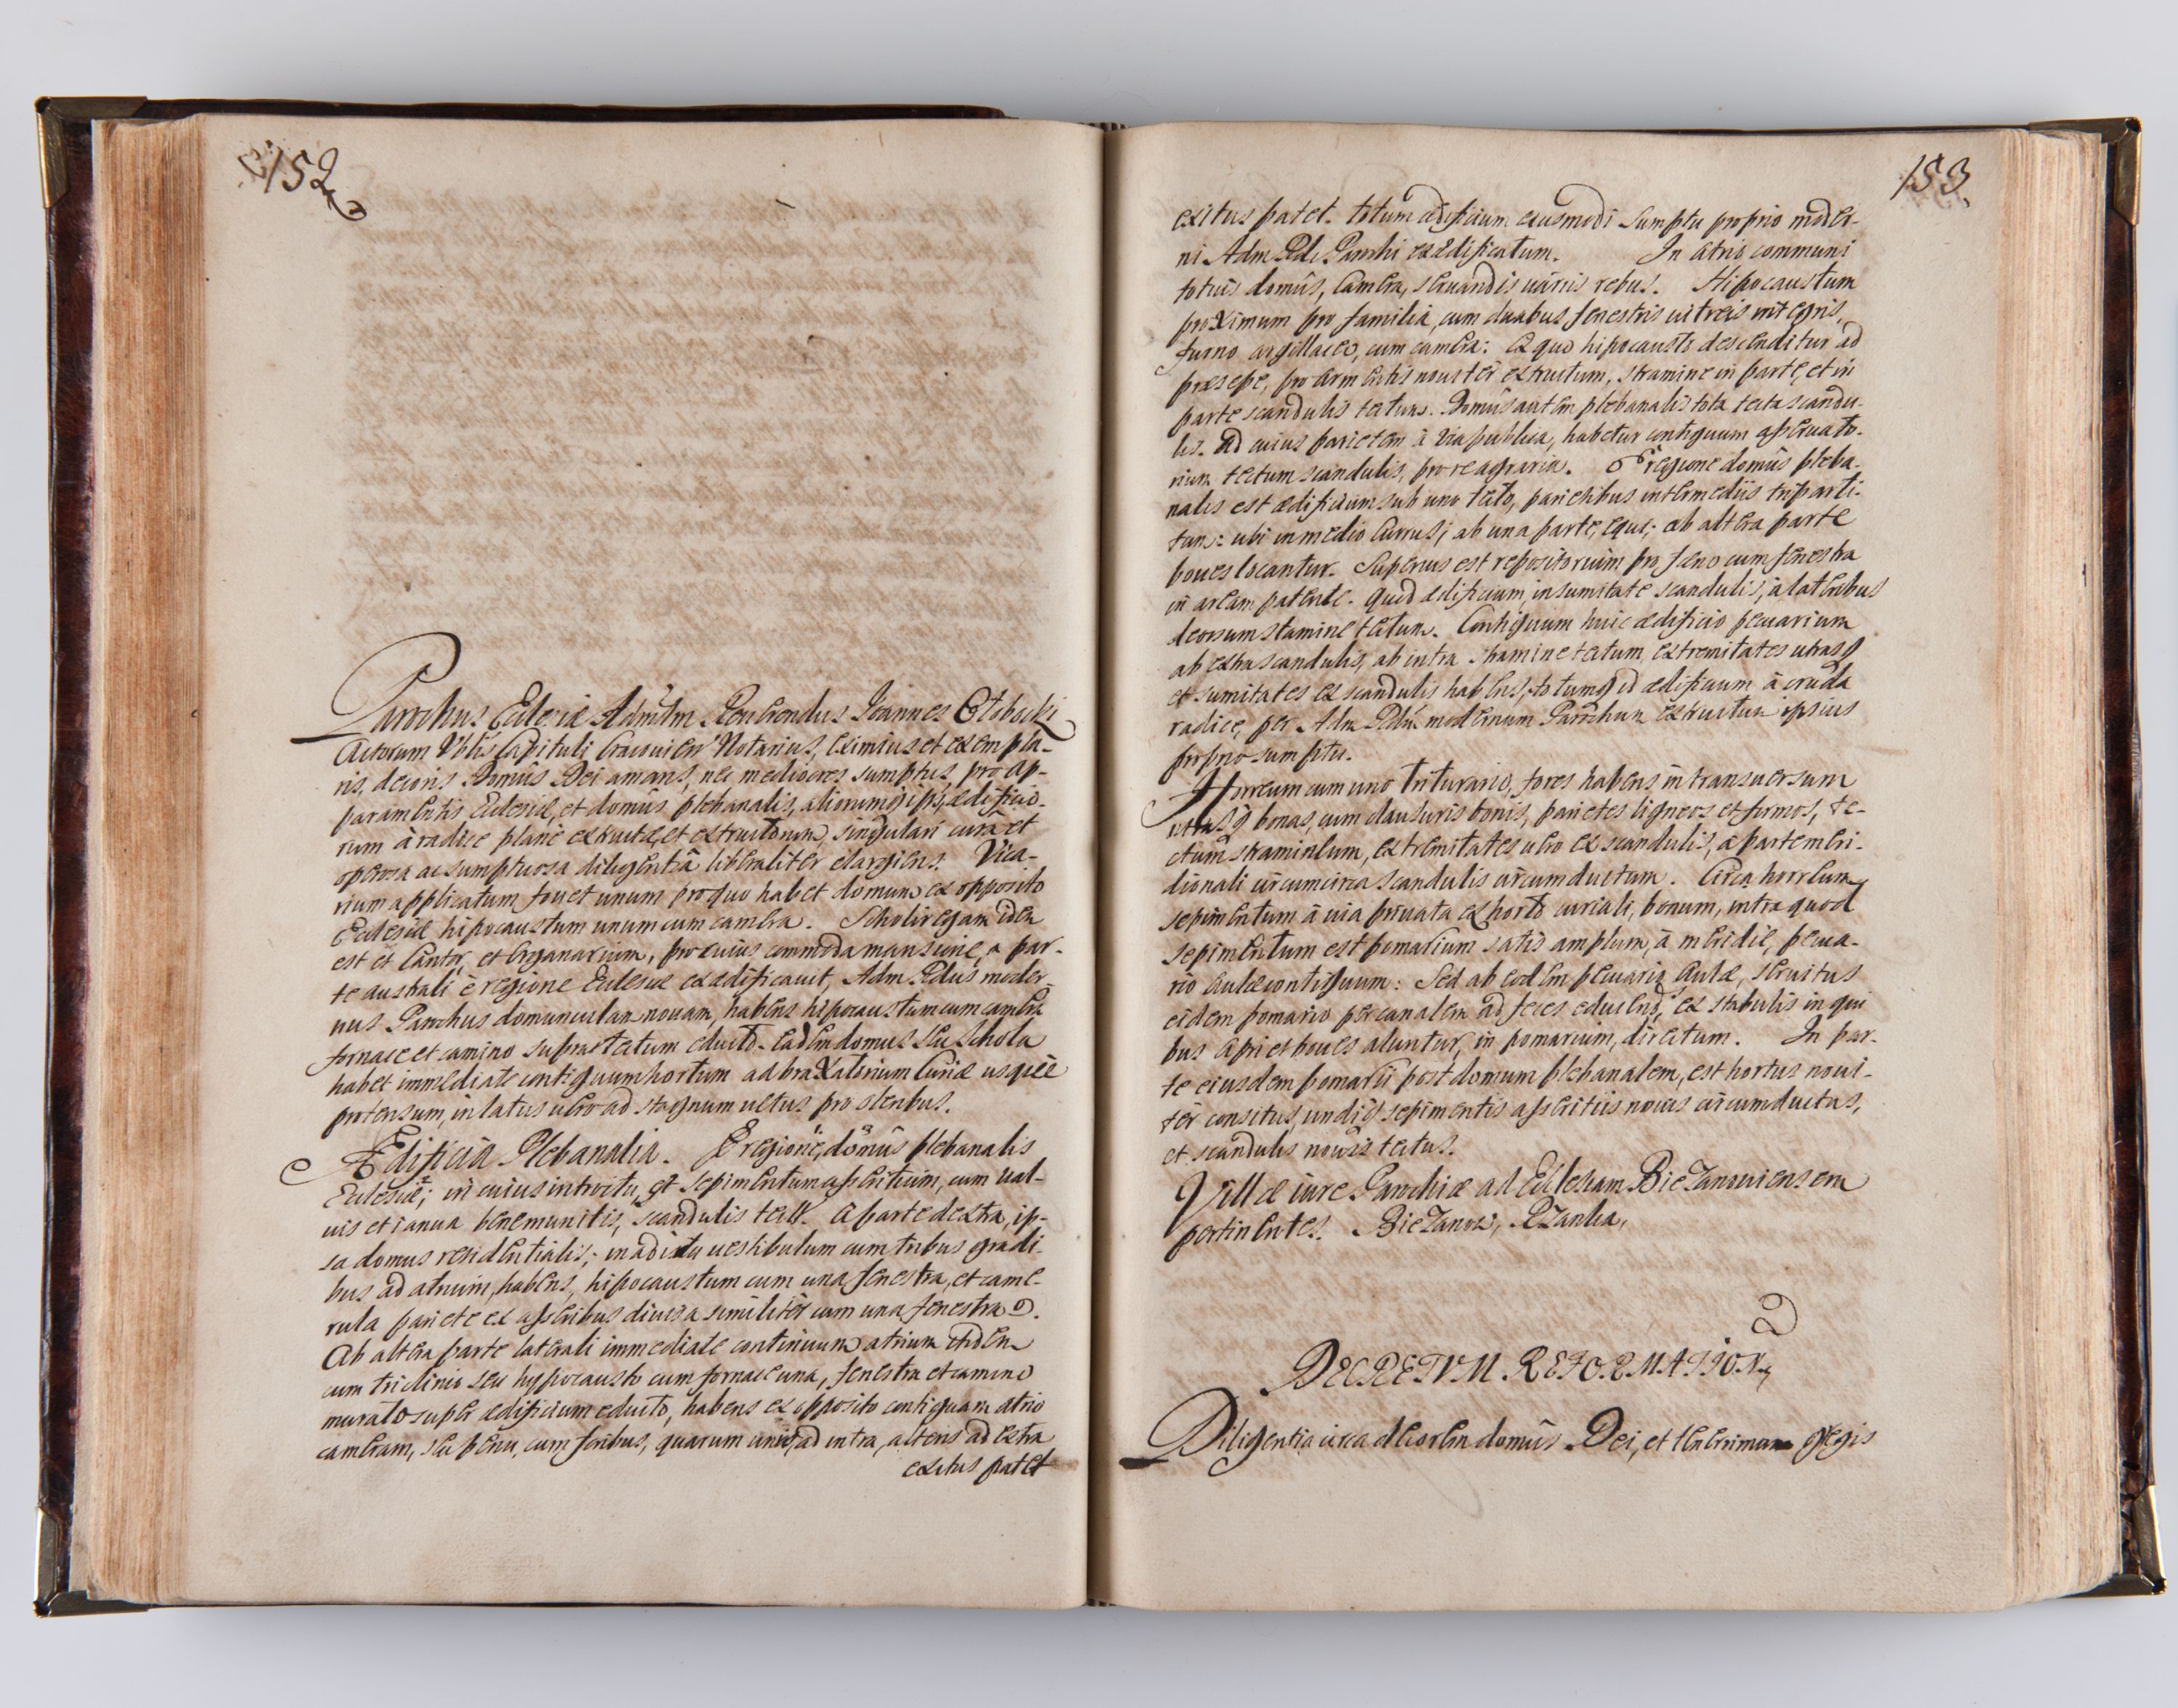 152
Parochus Eclesiæ Admdm Reuerendus Ioannes
Actorum Vblis Capituli Cracouien Notarius, eximius et exempla-
ris, decoris Domûs Dei amans, nec mediocres sumptus, pro ap-
paramentis Eclesiæ, et domûs plebanalis, aliorumq ipsi, ædificio-
rum à radice planè extructæ, et extructorum, singulari curâ et
operosa ac sumptuosa diligentiâ liberaliter elargiens. Vica-
rium applicatum fouet unum pro quo habet domum ex opposito
Eclesiæ hipocaustum unum cum camera. Scholiregam idem
est et Cantor, et Organarium, pro cuius commoda mansione, a par-
te australi è regione Eclesiæ exædificauit, Adm Rdus moder-
nus Parochus domunculam nouam, habens hipocaustum cum camera
fornace et camino supra tectum educto. Eadem domus seu schola
habet immediate contiguum hortum ad braxatorium Curiæ usque
protensum, in latus uero ad stagnum uetus pro stenbus.
Ædificia Plebanalia. E regione, domûs plebanalis
Eclesiæ; in cuius introitu, est sepimentum asseritium, cum val-
uis et ianua bene munitis, scandulis tect. A parte dextra, ip-
sa domus residentialis; in aditu uestibulum cum tribus gradi-
bus ad atrium, habens, hipocaustum cum una fenestra, et came-
rula pariete ex asseribus diuisa similiter cum una fenestra.
Ab altera parte laterali immediate continuum atrium itidem
cum triclinio seu hypocausto cum fornace una, fenestra et camino
murato super ædificium educto, habens ex opposito contiguam atrio
cameram, seu penu, cum foribus, quarum unius, ad intra, alterius ad extra
exitus patet
153
exitus patet. totum ædificium eiusmodi sumptu proprio moder-
ni Adm Rdi Parochi exædificatum. In atrio communi
totius domûs, Camera, seruandis uariis rebus. Hipocaustum
proximum pro familia, cum duabus fenestris uitreis integris,
furno argillaceo, cum camera: ex quo hipocausto descenditur ad
præsepe, pro armentis nouiter extructum, stramine in parte, et in
parte scandulis tectum. Domûs autem plebanalis tota tecta scandu-
lis. Ad cuius parietem à via publica, habetur contiguum asseruato-
rium tectum scandulis, pro re agraria. E regione domûs pleba-
nalis est ædificium sub uno tecto, parietibus intermediis triparti-
tum: ubi in medio Currus, ab una parte, equi; ab altera parte
boues locantur. Superius est repositorium pro fæno cum fenestra
in aream patente. Quod ædificium, in sumitate scandulis, à lateribus
deorsum stramine tectum. Contiguum huic ædificio pecuarium
ab extra scandulis, ab intra stramine tectum, extremitates utrasq
et sumitates ex scandulis habens, totumq id ædificium à cruda
radice, per Adm Rdm modernum Parochum extructum ipsius
proprio sumptu.
Horreum cum uno triturario, fores habens in transuersum
utrasq bonas, cum clausuris bonis, parietes ligneos et firmos, te-
ctum stramineum, extremitates uero ex scandulis, a parte meri-
dionali circumcirca scandulis circumductum. Circa horreum
sepimentum à uia priuata ex horto curiali, bonum, intra quod
sepimentum est pomarium satis amplum, à meridie, pecua-
rio aulæ contiguum: Sed ab eodem pecuario Aulæ, seruitus
eidem pomario per canalem ad feces educend, ex stabulis in qui
bus apri et boues aluntur, in pomarium, directum. In par-
te eiusdem pomarii post domum plebanalem, est hortus noui-
ter consitus, undiq sepimentis asseritiis nouis circumductus,
et scandulis nouis tectus.
Villæ iure Parochiæ ad Eclesiam Biezanouiensem
pertinentes. Biezanow, Rzanka,
DECRETVM REFORMATION
Diligentia circa decorem domûs Dei, et gregis